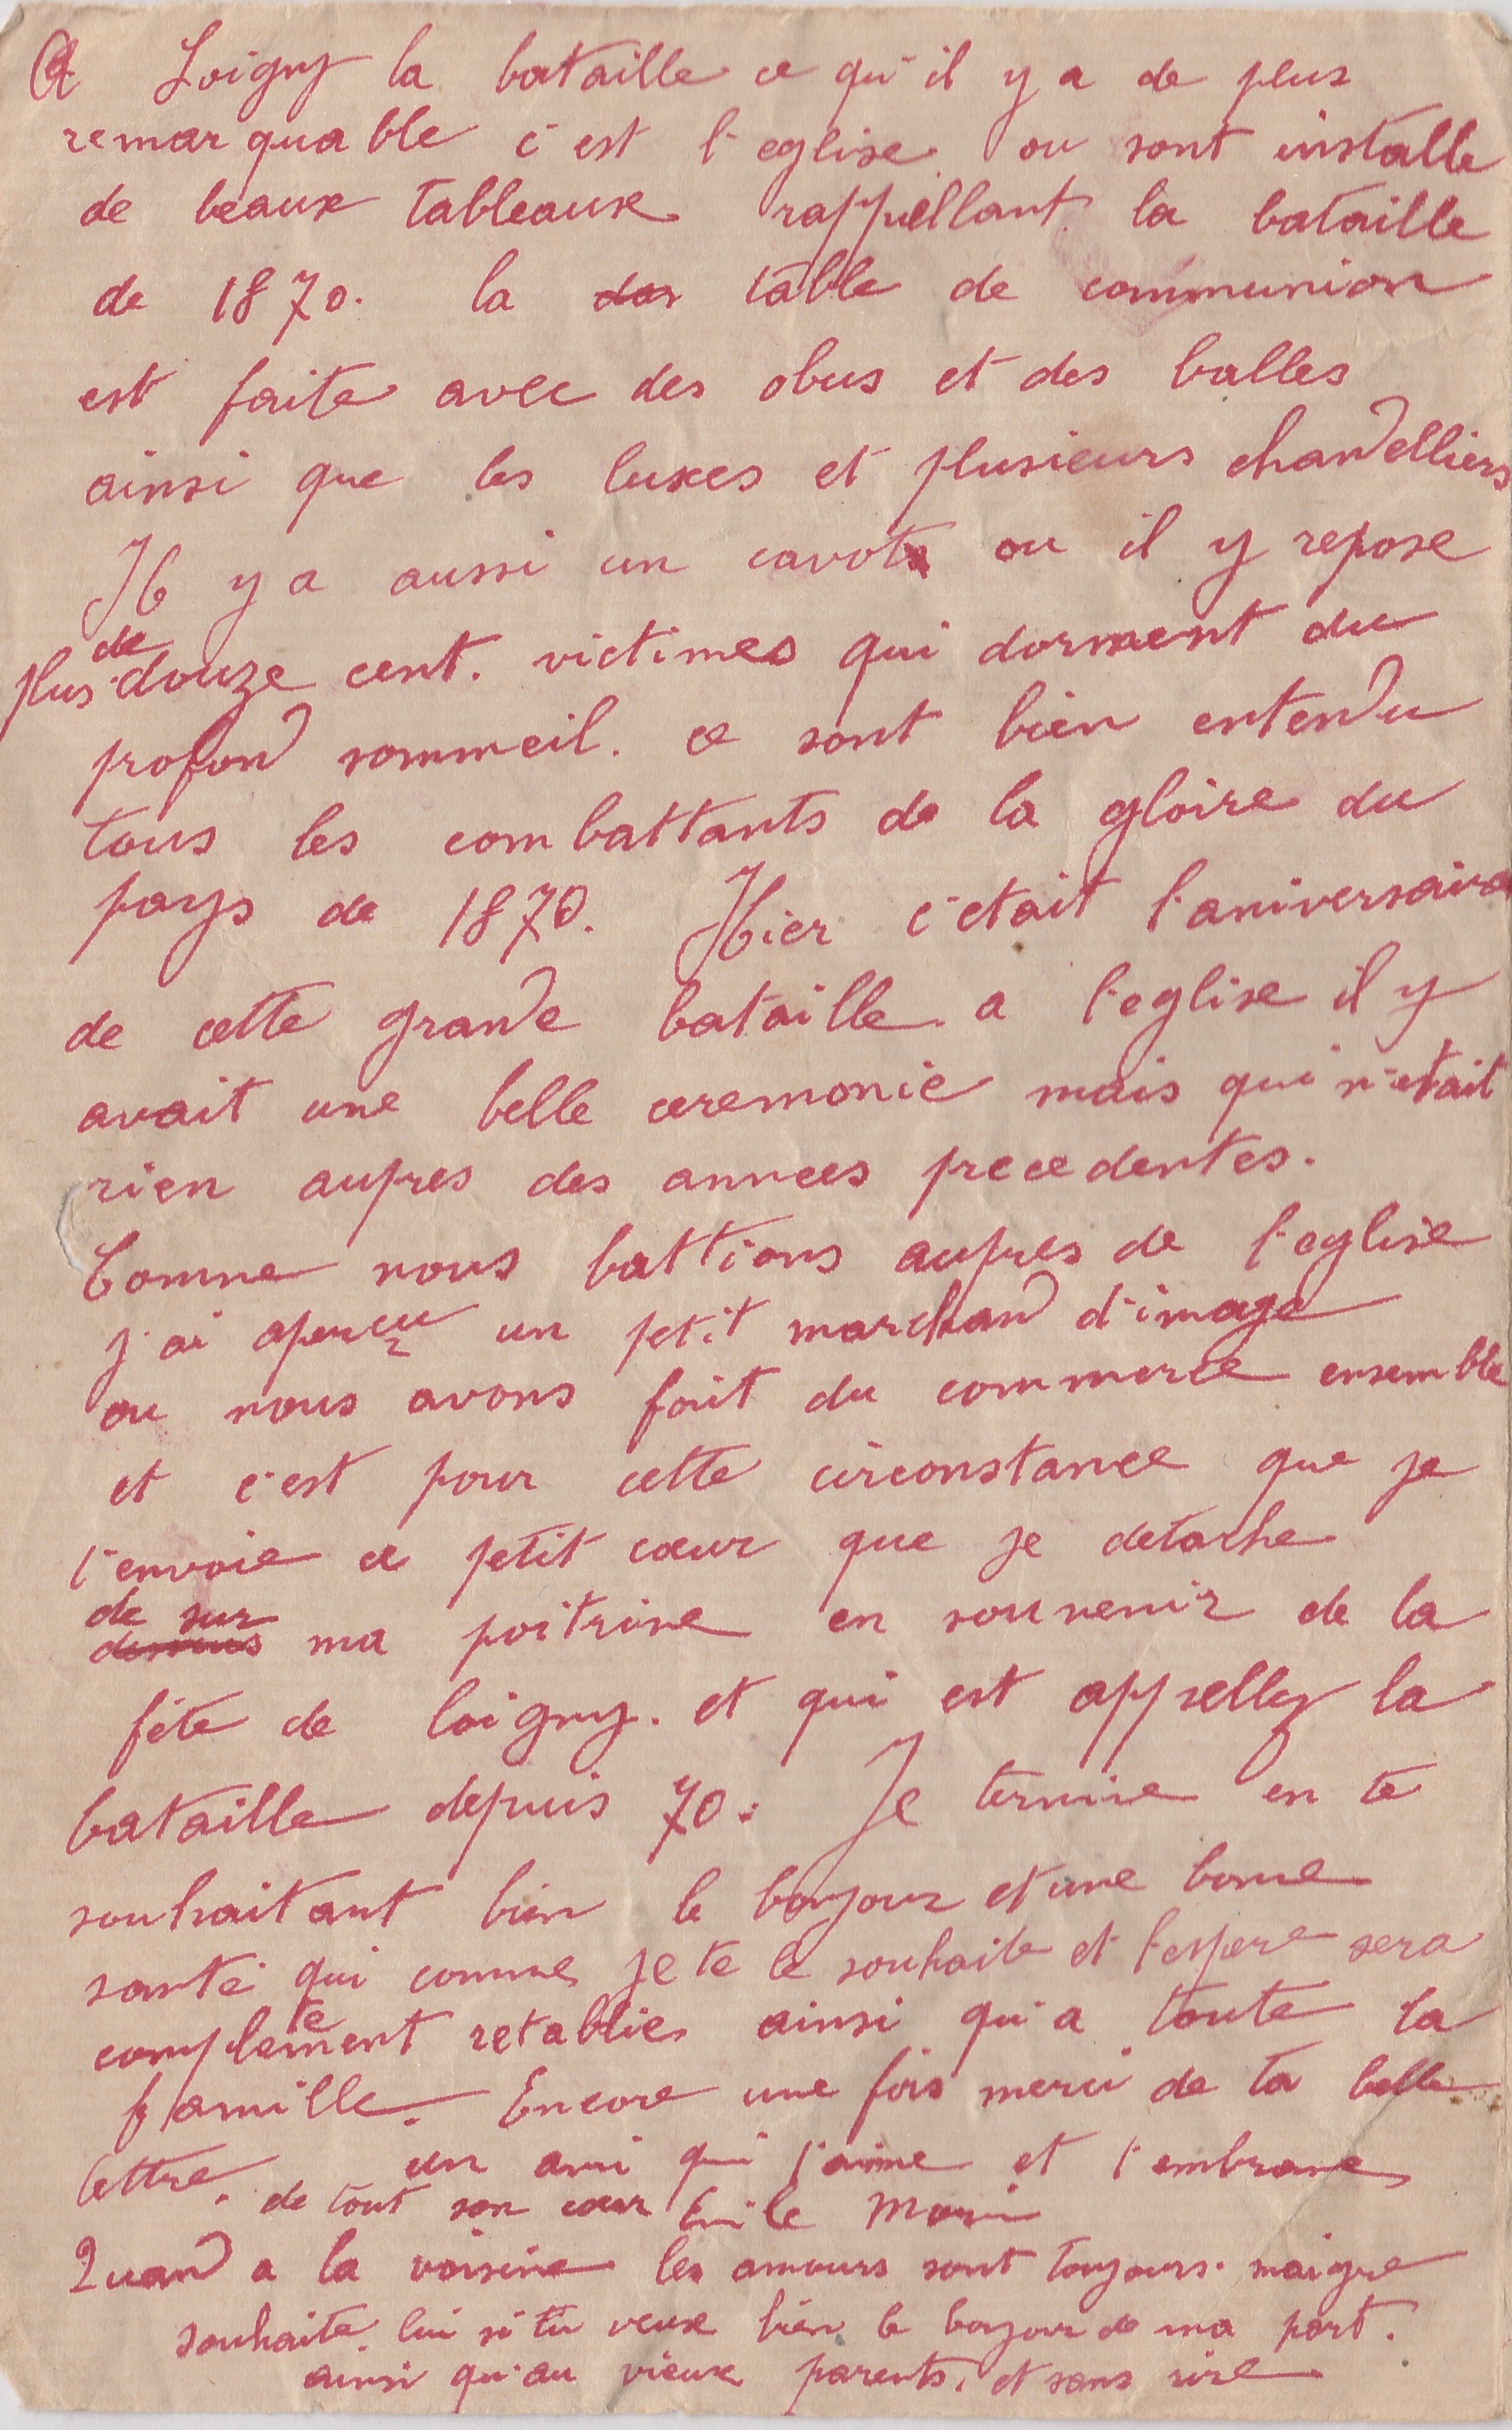 A Loigny la bataille ce qu'il y a de plus
remarquable c'est l'eglise ou sont installe
de beaux tableaux rappellant la bataille
de 1870. la des table de communion
est faite avec des obus et des balles
ainsi que les luxes et plusieurs chandelliers
Il y a aussi un cavot ou il y repose
plus de douze cent. victimes qui dorment du
profond sommeil. ce sont bien entendu
tous les combattants de la gloire du
pays de 1870. Hier c'etait l'aniversaire
de cette grande bataille. a l'eglise il y
avait une belle ceremonie mais qui n'etait
rien aupres des annees precedentes.
Comme nous battions aupres de l'eglise
j'ai aperçu un petit marchand d'image
ou nous avons fait du commerce ensemble
et c'est pour cette circonstance que je
t'envoie ce petit cœur que je detache
de sur dessus ma poitrine en souvenir de la
fête de loigny. et qui est appelley la
bataille depuis 70. Je termine en te
souhaitant bien le bonjour et une bonne
santé qui comme je te le souhaite et l'espere sera
completement retablie ainsi qu'a toute ta
famille. Encore une fois merci de ta belle
lettre. un ami qui t'aime et t'embrasse
de tout son cœur Emile
Quand a la voisine les amours sont toujours. maigre
souhaite lui si tu veux bien le bonjour de ma part.
ainsi qu'au vieux parents. et sans rire